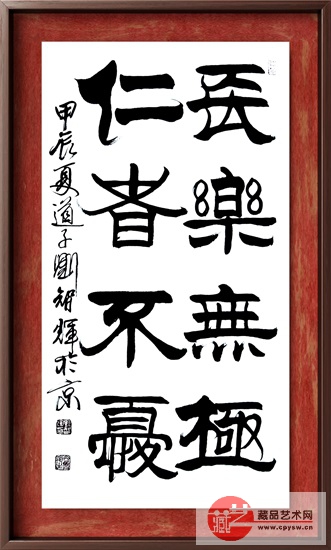 長樂無極
仁者不憂
甲辰夏道子刚智輝於京
藏品艺术网
www.cpysw.cn